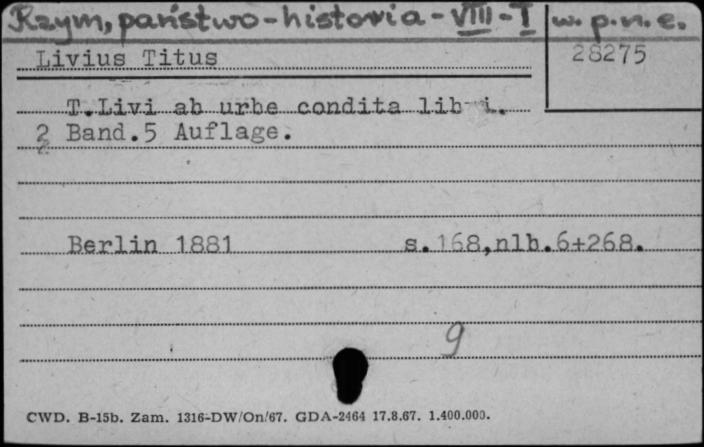 Rzym, państwo-historia-VIII-I w. p.n.e.
Livius Titus 28275
T.Livi ab urbe condita libri.
2 Band.5 Auflage.
Berlin 1881 s.168,nlb.6+268.
9
CWD. B-15b. Zam. 1316-DW/On/67. GDA-2464 17.8.67. 1.400.000.